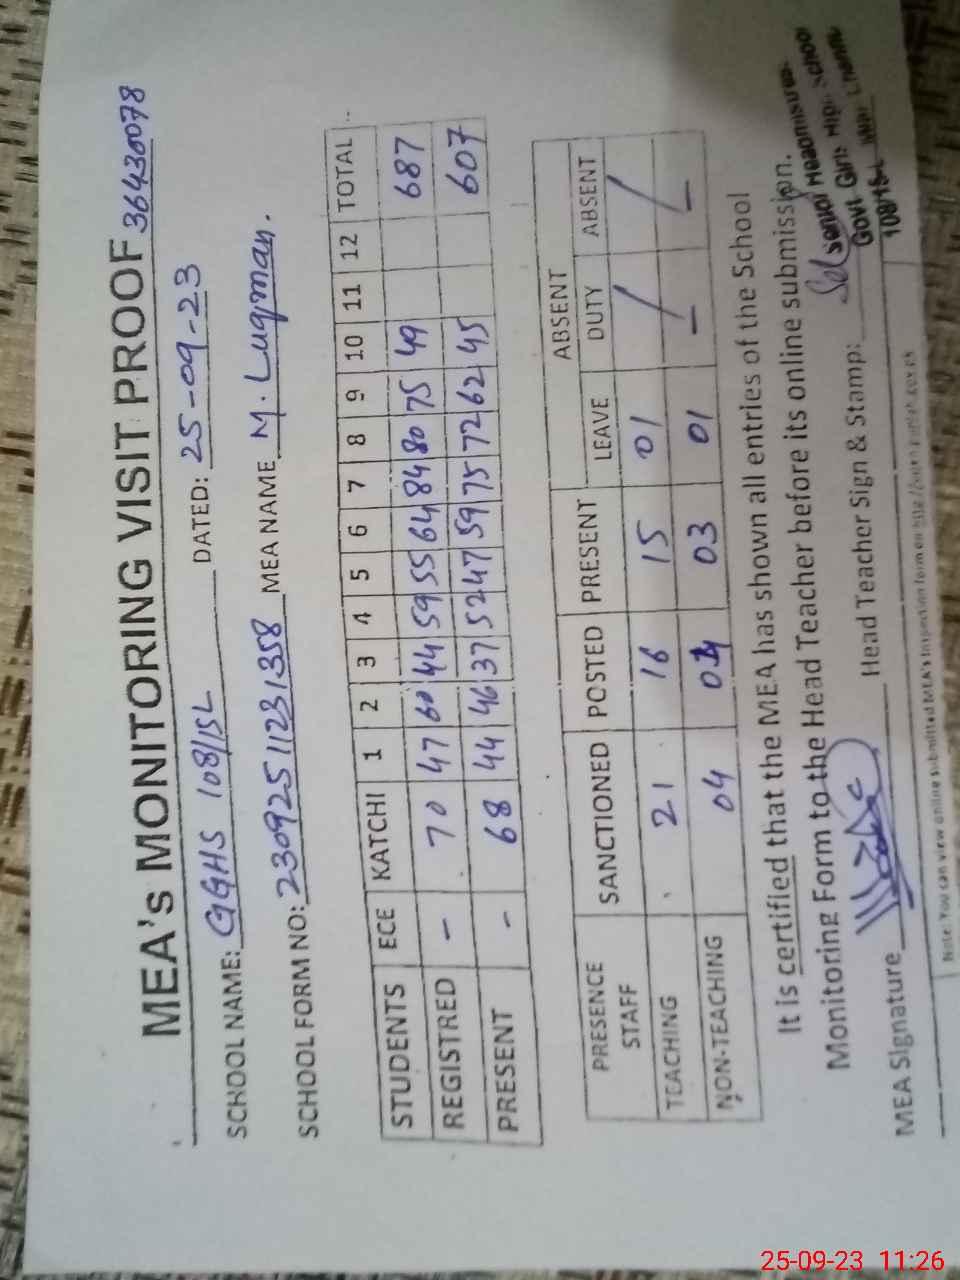 MEA's MONITORING VISIT PROOF 36430078
SCHOOL NAME: GGHS 108/15L DATED: 25-09-23
SCHOOL FORM NO: 23092511231358 MEA NAME M. Luqman.
STUDENTS ECE KATCHI 1 2 3 4 5 6 7 8 9 10 11 12 TOTAL
REGISTRED - 70 47 60 44 59 55 64 84 80 75 49 687
PRESENT - 68 44 46 37 52 47 59 75 72 62 45 607
PRESENCE STAFF SANCTIONED POSTED PRESENT ABSENT
LEAVE DUTY ABSENT
TEACHING 21 16 15 01 / /
NON-TEACHING 04 04 03 01 - -
It is certified that the MEA has shown all entries of the School
Monitoring Form to the Head Teacher before its online submission.
MEA Signature Head Teacher Sign & Stamp:
Senior Headmistress
Govt Girls High School
108/15-L
Note: You can view online submitted MEA's Inspection form on
25-09-23 11:26